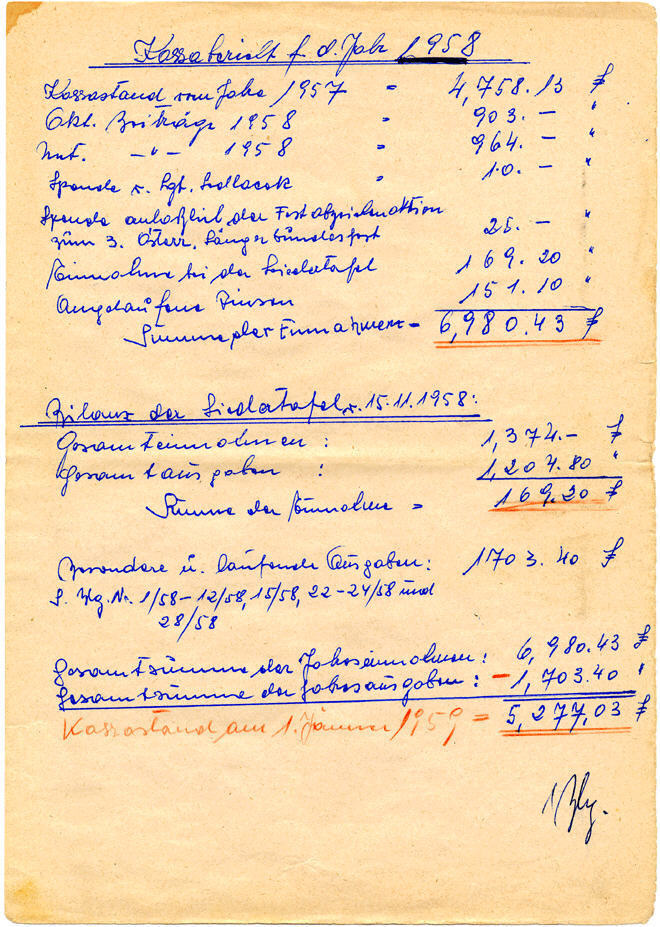 Kassabericht f. d. Jahr 1958
Kassastand vom Jahre 1957 = 4,758.13 S
Akt. Beiträge 1958 = 903.— "
Unt. —"— 1958 = 964.— "
Spende v. Sgt. Sedlacek = 10.— "
Spende anläßlich der Festabzeichenaktion
zum 3. Österr. Sängerbundesfest 25.— "
Einnahme bei der Liedertafel 169.20 "
Angelaufene Zinsen 151.10 "
Summe der Einnahmen = 6,980.43 S
Bilanz der Liedertafel v. 15.11.1958:
Gesamteinnahmen: 1,374.— S
Gesamtausgaben : 1,204.80 "
Summe der Einnahme = 169.20 S
Besondere u. laufende Ausgaben: 1703.40 S
s. Blg. Nr. 1/58 – 12/58, 15/58, 22 – 24/58 und
28/58
Gesamtsumme der Jahreseinnahmen: 6,980.43 S
Gesamtsumme der Jahresausgaben: - 1,703.40 "
Kassastand am 1. Jänner 1959 = 5,277,03 S